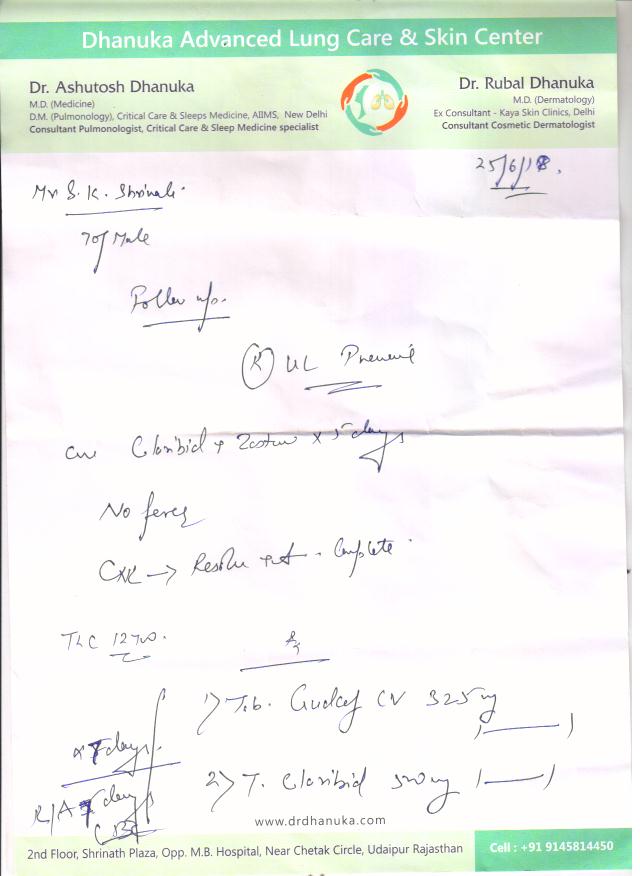 Dhanuka Advanced Lung Care & Skin Center
Dr. Ashutosh Dhanuka
M.D. (Medicine)
D.M. (Pulmonology), Critical Care & Sleeps Medicine, AIIMS, New Delhi
Consultant Pulmonologist, Critical Care & Sleep Medicine specialist
Dr. Rubal Dhanuka
M.D. (Dermatology)
Ex Consultant - Kaya Skin Clinics, Delhi
Consultant Cosmetic Dermatologist
25/6/18.
Mr S. K.
70/ Male
Follow up.
(R) UL
Claribid + x 5 days
No fever
CXR → Complete
TLC
Rx
1) Tab. CV 325 mg
1 ——— 1
x 7 days
2) T. Claribid 500mg 1 ——— 1
R/A 7 days
CBC
www.drdhanuka.com
2nd Floor, Shrinath Plaza, Opp. M.B. Hospital, Near Chetak Circle, Udaipur Rajasthan
Cell : +91 9145814450